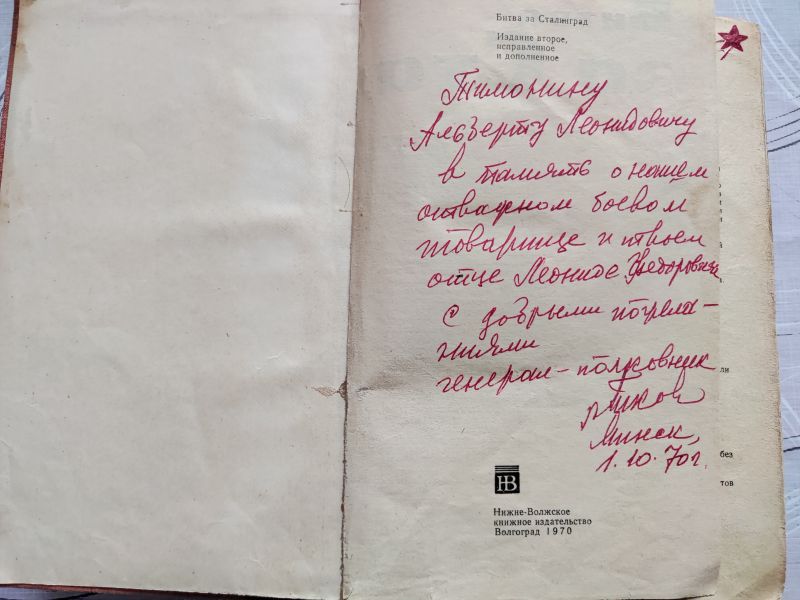 Битва за Сталинград
Издание второе,
исправленное
и дополненное
Тимонину
Альберту Леонидовичу
в память о нашем
отважном боевом
товарище и твоем
отце Леониде Федоровиче
С добрыми пожела-
ниями
генерал-полковник
Минск,
1.10.70г.
НВ
Нижне-Волжское
книжное издательство
Волгоград 1970
ли
без
тов